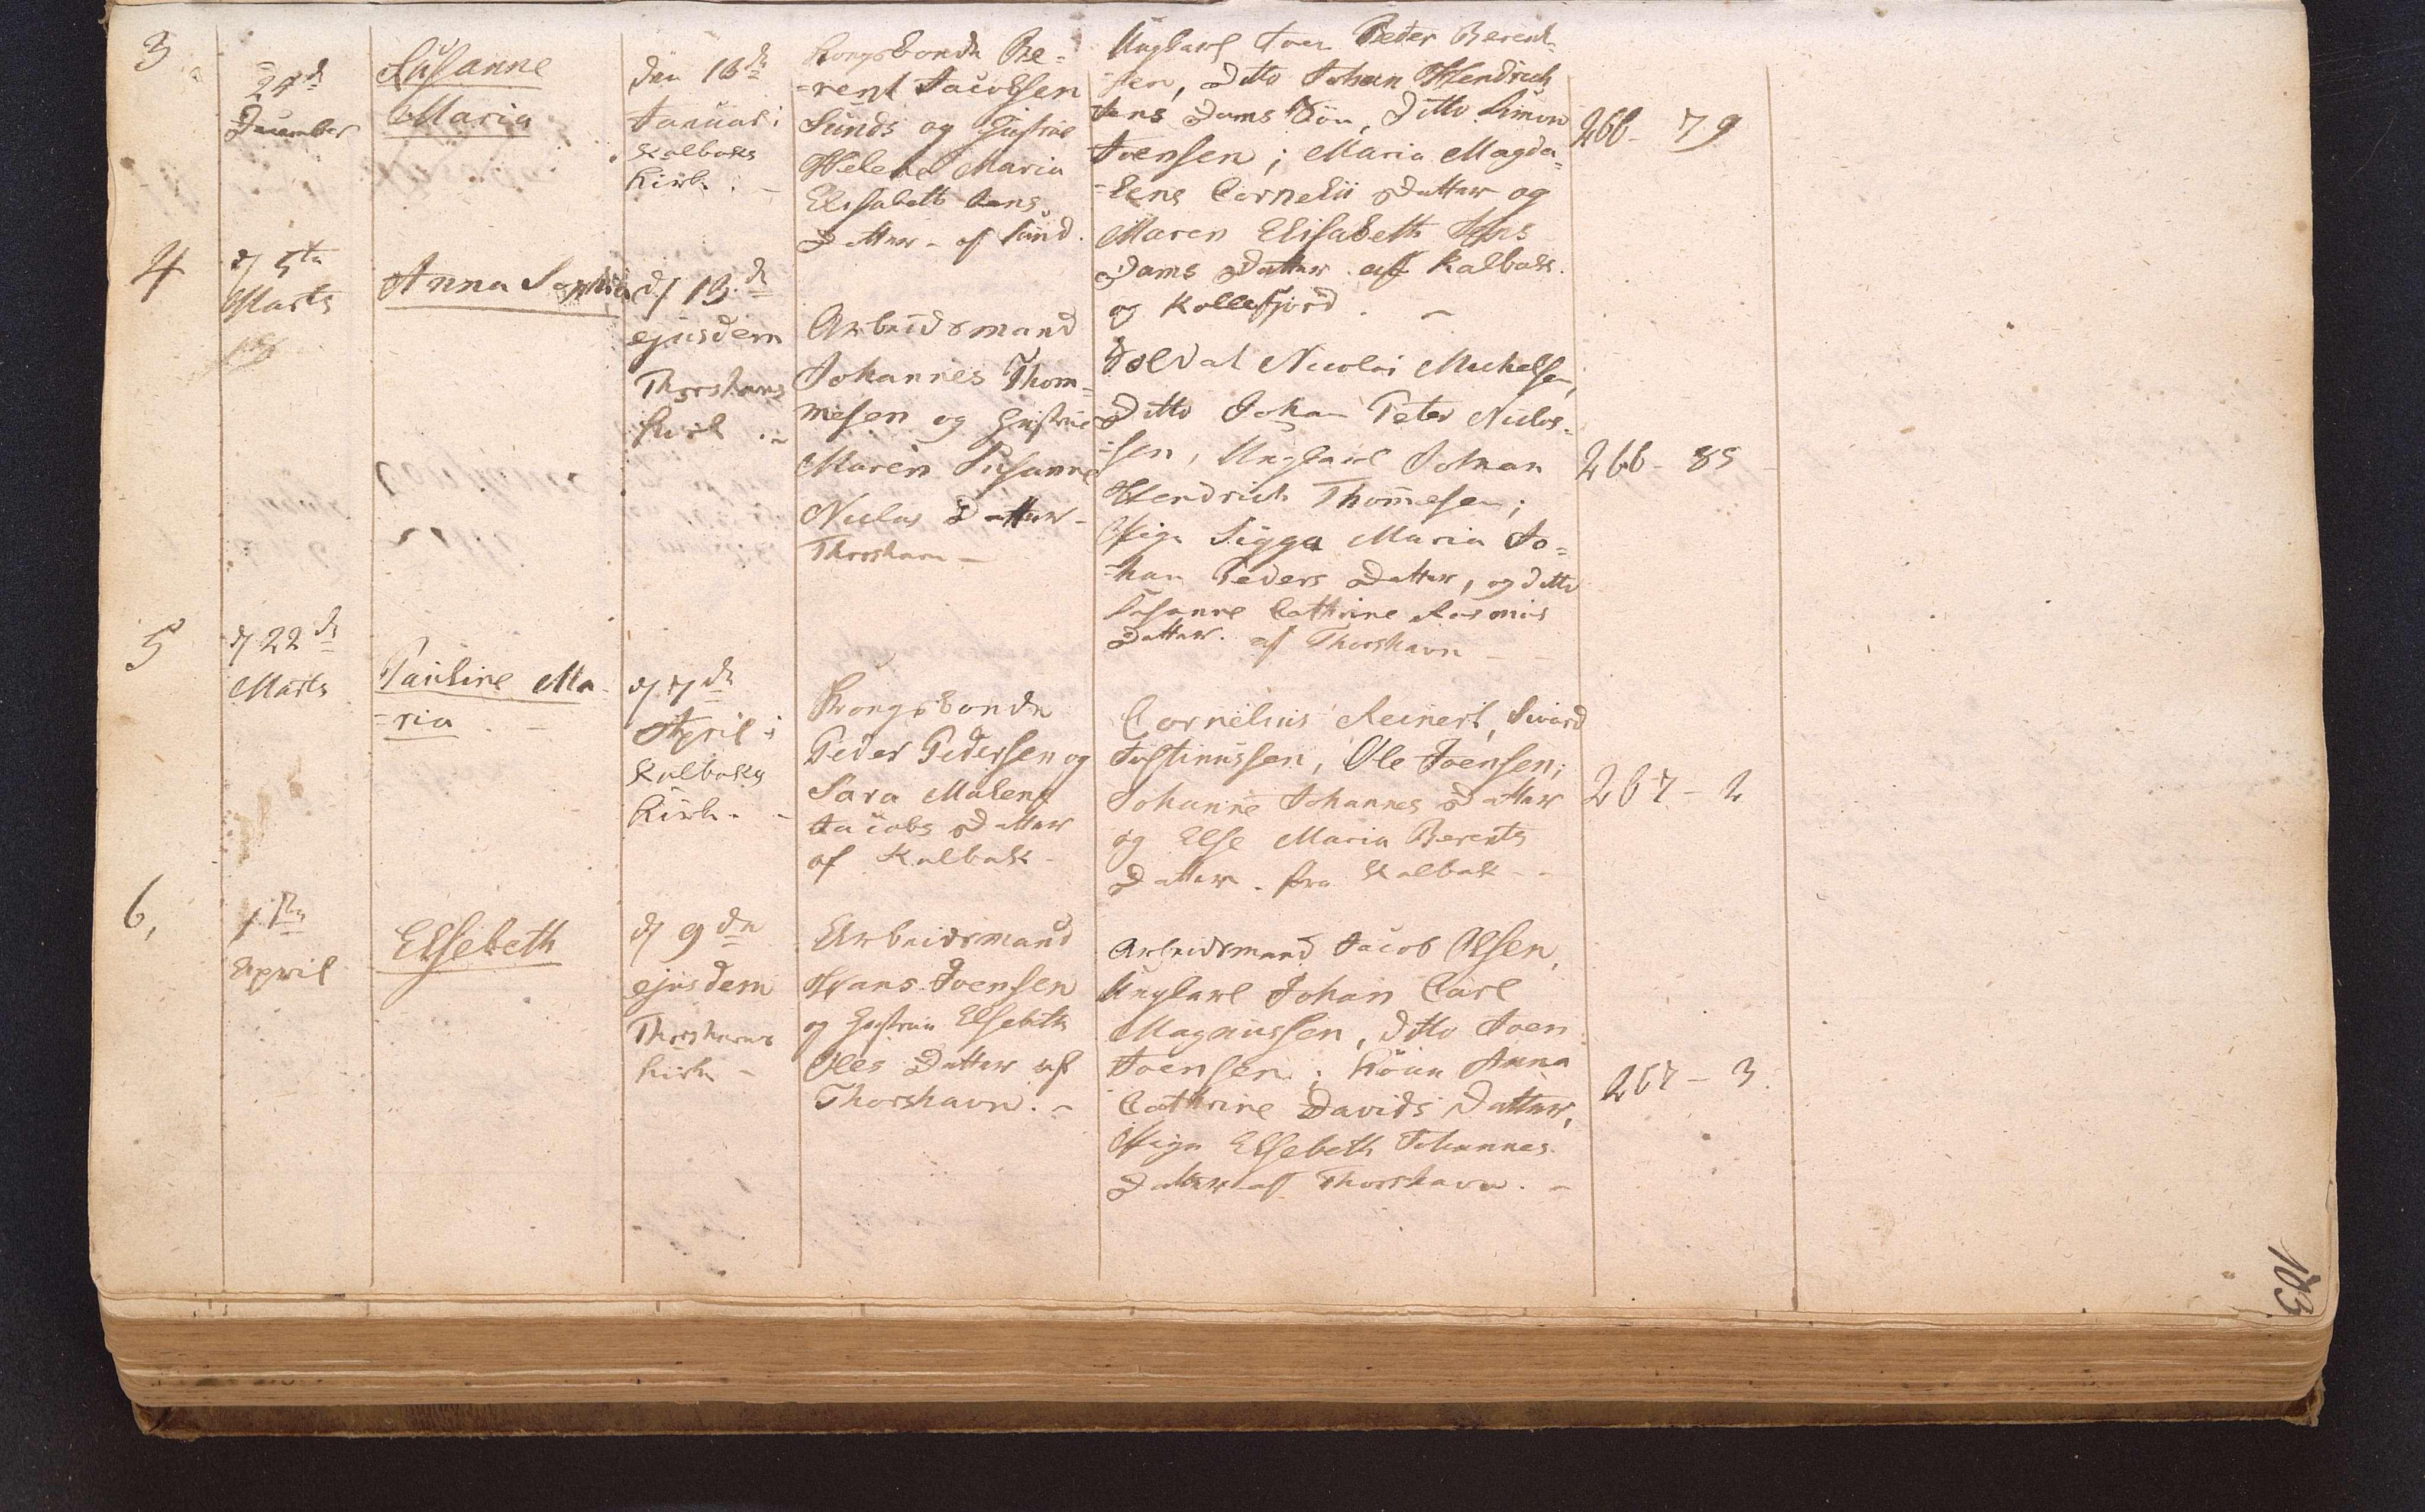 3
24d
December
Susanne
Maria
den 18de
Januar i
Kalbaks
Kirke. -
Kongsbonde Be=
=rent Jacobsen
Sunds og Hustrue
Helene Maria
Elisabeth Jens
Datter - af Sund.
Ungkarl Joen Peder Berent-
=sen, Ditto Johan Hendrich
Jens Dams Søn, Ditto Simon
Joensen; Maria Magda=
=lena Cornelii Datter og
Maren Elisabeth Jens
Dams Datter af Kalbak.
og Kollefjord. -
266 - 79
4
d 5te
Marts
Anna Sophia
d 13de
ejusdem
Thorshavns
Kirke .-
Arbeidsmand
Johannes Thom=
mesen og Hustrue
Maren Susanne
Niclas Datter -
Thorshavn -
Soldat Nicolai Michelsen,
Ditto Johan Peter Niclas=
=sen, Ungkarl Johan
Hendrich Thomesen;
Pige Sigga Maria Jo=
=han Peders Datter, og ditto
Susanne Cathrine Rasmus
Datter. af Thorshavn - -
266 - 85
5
d 22de
Marts
Pauline Ma-
=ria . -
d 7de
April i
Kalbaks
Kirke. -
Kongsbonde
Peder Pedersen og
Sara Malena
Jacobs Datter
af Kalbak -
Cornelius Reinert, Sivard
Justinussen, Ole Joensen;
Johanne Johannes Datter
og Else Maria Berents
Datter. fra Kalbak - -
267 - 2
6,
1ste
April
Elsebeth
d 9de
ejusdem
Thorshavns
Kirke -
Arbeidsmand
Hans Joensen
og Hustrue Elsebeth
Oles Datter af
Thorshavn. -
Arbeidsmand Jacob Olsen,
Ungkarl Johan Carl
Magnussen, Ditto Joen
Joensen; Kone Anna
Cathrine Davids Datter,
Pige Elsebeth Johannes
Datter af Thorshavn. -
267 - 3.
103